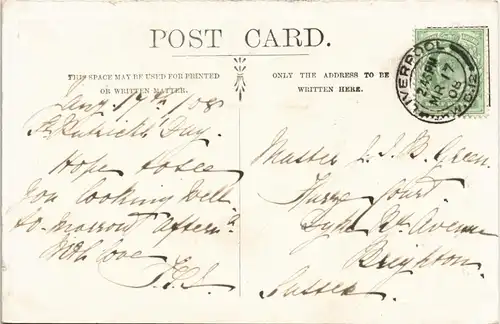 POST CARD.
THIS SPACE MAY BE USED FOR PRINTED
OR WRITTEN MATTER.
ONLY THE ADDRESS TO BE
WRITTEN HERE.
LIVERPOOL
MR 17
08
17th/08
St Patrick's Day.
Hope to see
you looking well
to-morrow aftern.
With love
Master L. J. B. Green.
Court
Avenue
Brighton.
Sussex.